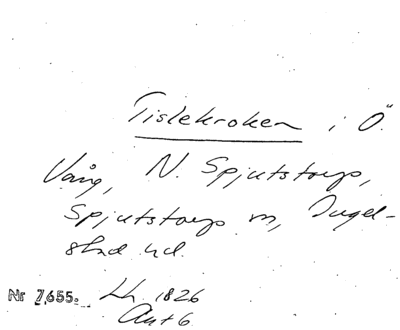 Tislekroken i Ö.
Vång, N. Spjutstorps,
Spjutstorps sn, Ingel-
stad hd.
Nr 7,655. Lh. 1826
Akt 6